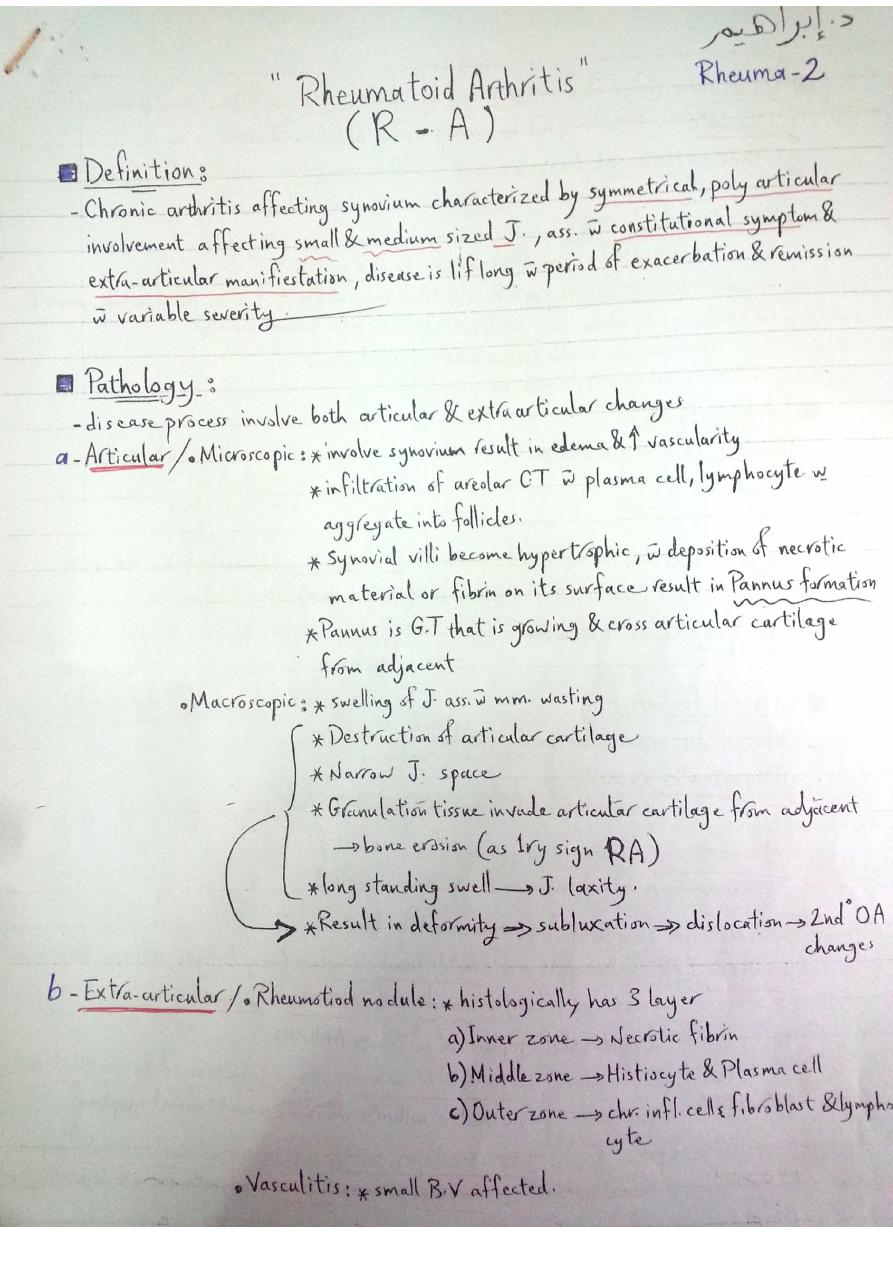 د. إبراهيم
Rheuma-2
"Rheumatoid Arthritis"
(R - A)
Definition:
- Chronic arthritis affecting synovium characterized by symmetrical, poly articular
involvement affecting small & medium sized J., ass. w̄ constitutional symptom &
extra-articular manifiestation, disease is lif long w̄ period of exacerbation & remission
w̄ variable severity.
Pathology:
- disease process involve both articular & extra articular changes
a - Articular / • Microscopic: * involve synovium result in edema & ↑ vascularity
* infiltration of areolar CT w̄ plasma cell, lymphocyte w
aggregate into follicles.
* Synovial villi become hypertrophic, w̄ deposition of necrotic
material or fibrin on its surface result in Pannus formation
* Pannus is G.T that is growing & cross articular cartilage
from adjacent
• Macroscopic: * swelling of J. ass. w̄ mm. wasting
* Destruction of articular cartilage
* Narrow J. space
* Granulation tissue invade articular cartilage from adjacent
→ bone erosion (as 1ry sign RA)
* long standing swell → J. laxity.
* Result in deformity ⇒ subluxation ⇒ dislocation → 2nd° OA
changes
b - Extra-articular / • Rheumotiod nodule: * histologically has 3 layer
a) Inner zone → Necrotic fibrin
b) Middle zone → Histiocyte & Plasma cell
c) Outer zone → chr. infl. cells fibroblast & lympho
cyte
• Vasculitis: * small B.V affected.